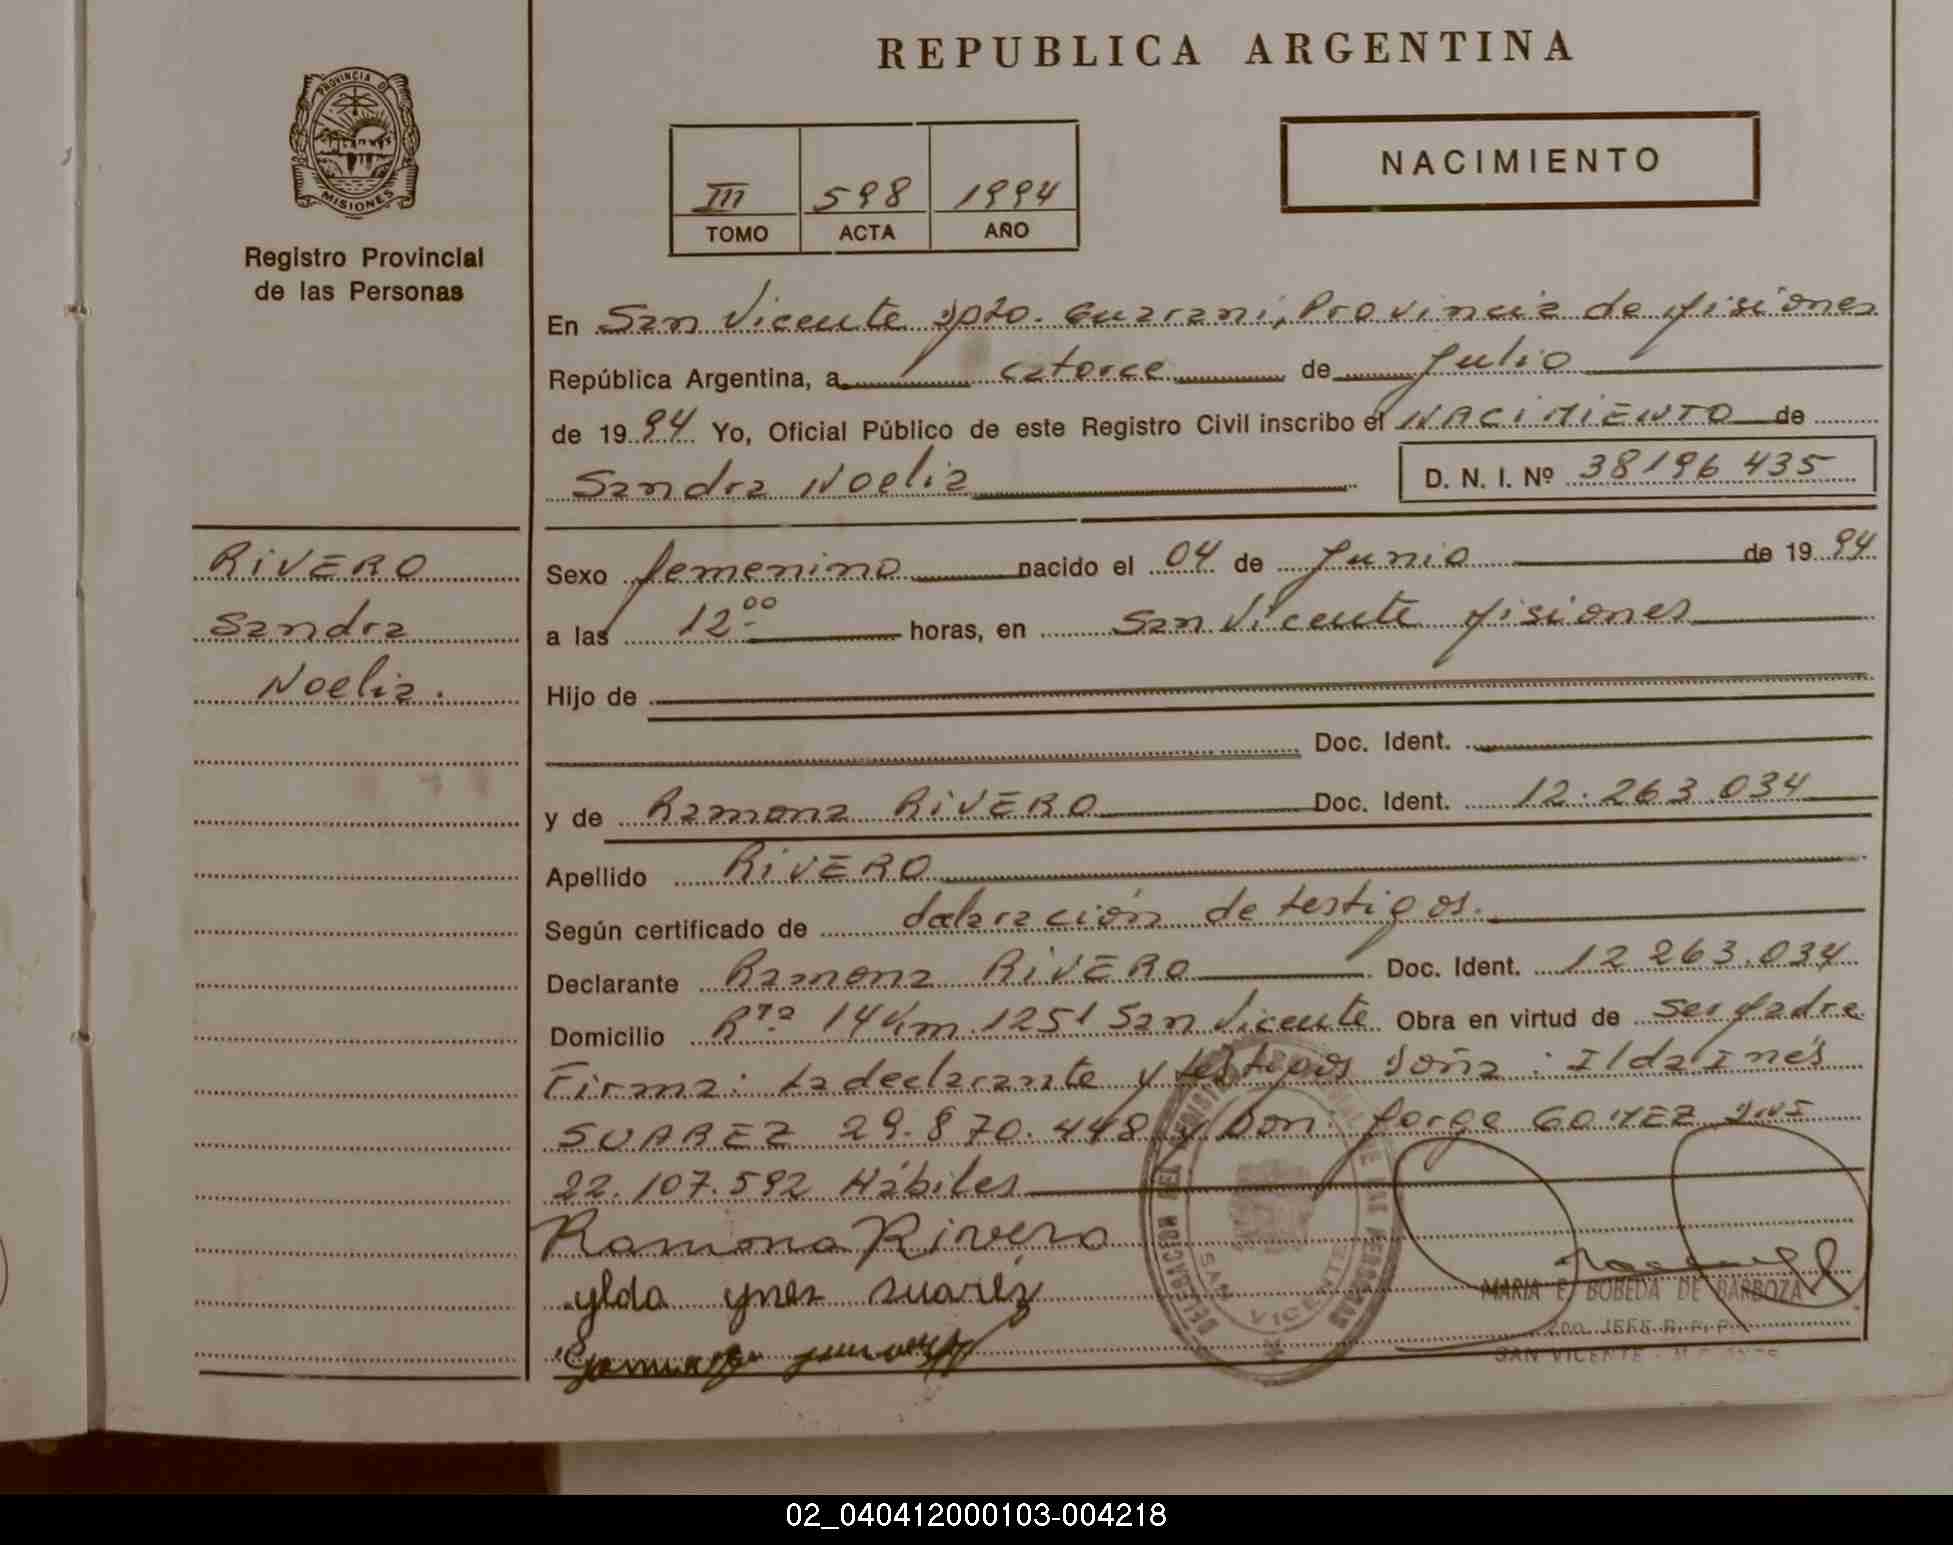 REPUBLICA ARGENTINA
PROVINCIA DE
MISIONES
Registro Provincial
de las Personas
NACIMIENTO
III 598 1994
TOMO ACTA AÑO
En San Vicente Dpto. Guaraní, Provincia de Misiones
República Argentina, a catorce de Julio
de 1994 Yo, Oficial Público de este Registro Civil inscribo el NACIMIENTO de
Sandra Noelia D. N. I. Nº 38196 435
RIVERO
Sandra
Noelia.
Sexo femenino nacido el 04 de Junio de 1994
a las 12:00 horas, en San Vicente Misiones
Hijo de
Doc. Ident.
y de Ramona RIVERO Doc. Ident. 12.263.034
Apellido RIVERO
Según certificado de dalaración de testigos.
Declarante Ramona RIVERO Doc. Ident. 12 263.034
Domicilio Rta 14 Km 1251 San Vicente Obra en virtud de ser
Firma: La declarante y testigos Doña: Ilda Inés
SUAREZ 29.870.448 y Don Jorge GOMEZ DNI
22.107.592 Hábiles
Ramona Rivero
ylda ynez suarez
SAN VICENTE
MARIA E. BOBEDA DE BARBOZA
2DO. JEFE R. P. P.
SAN VICENTE - MISIONES
02_040412000103-004218